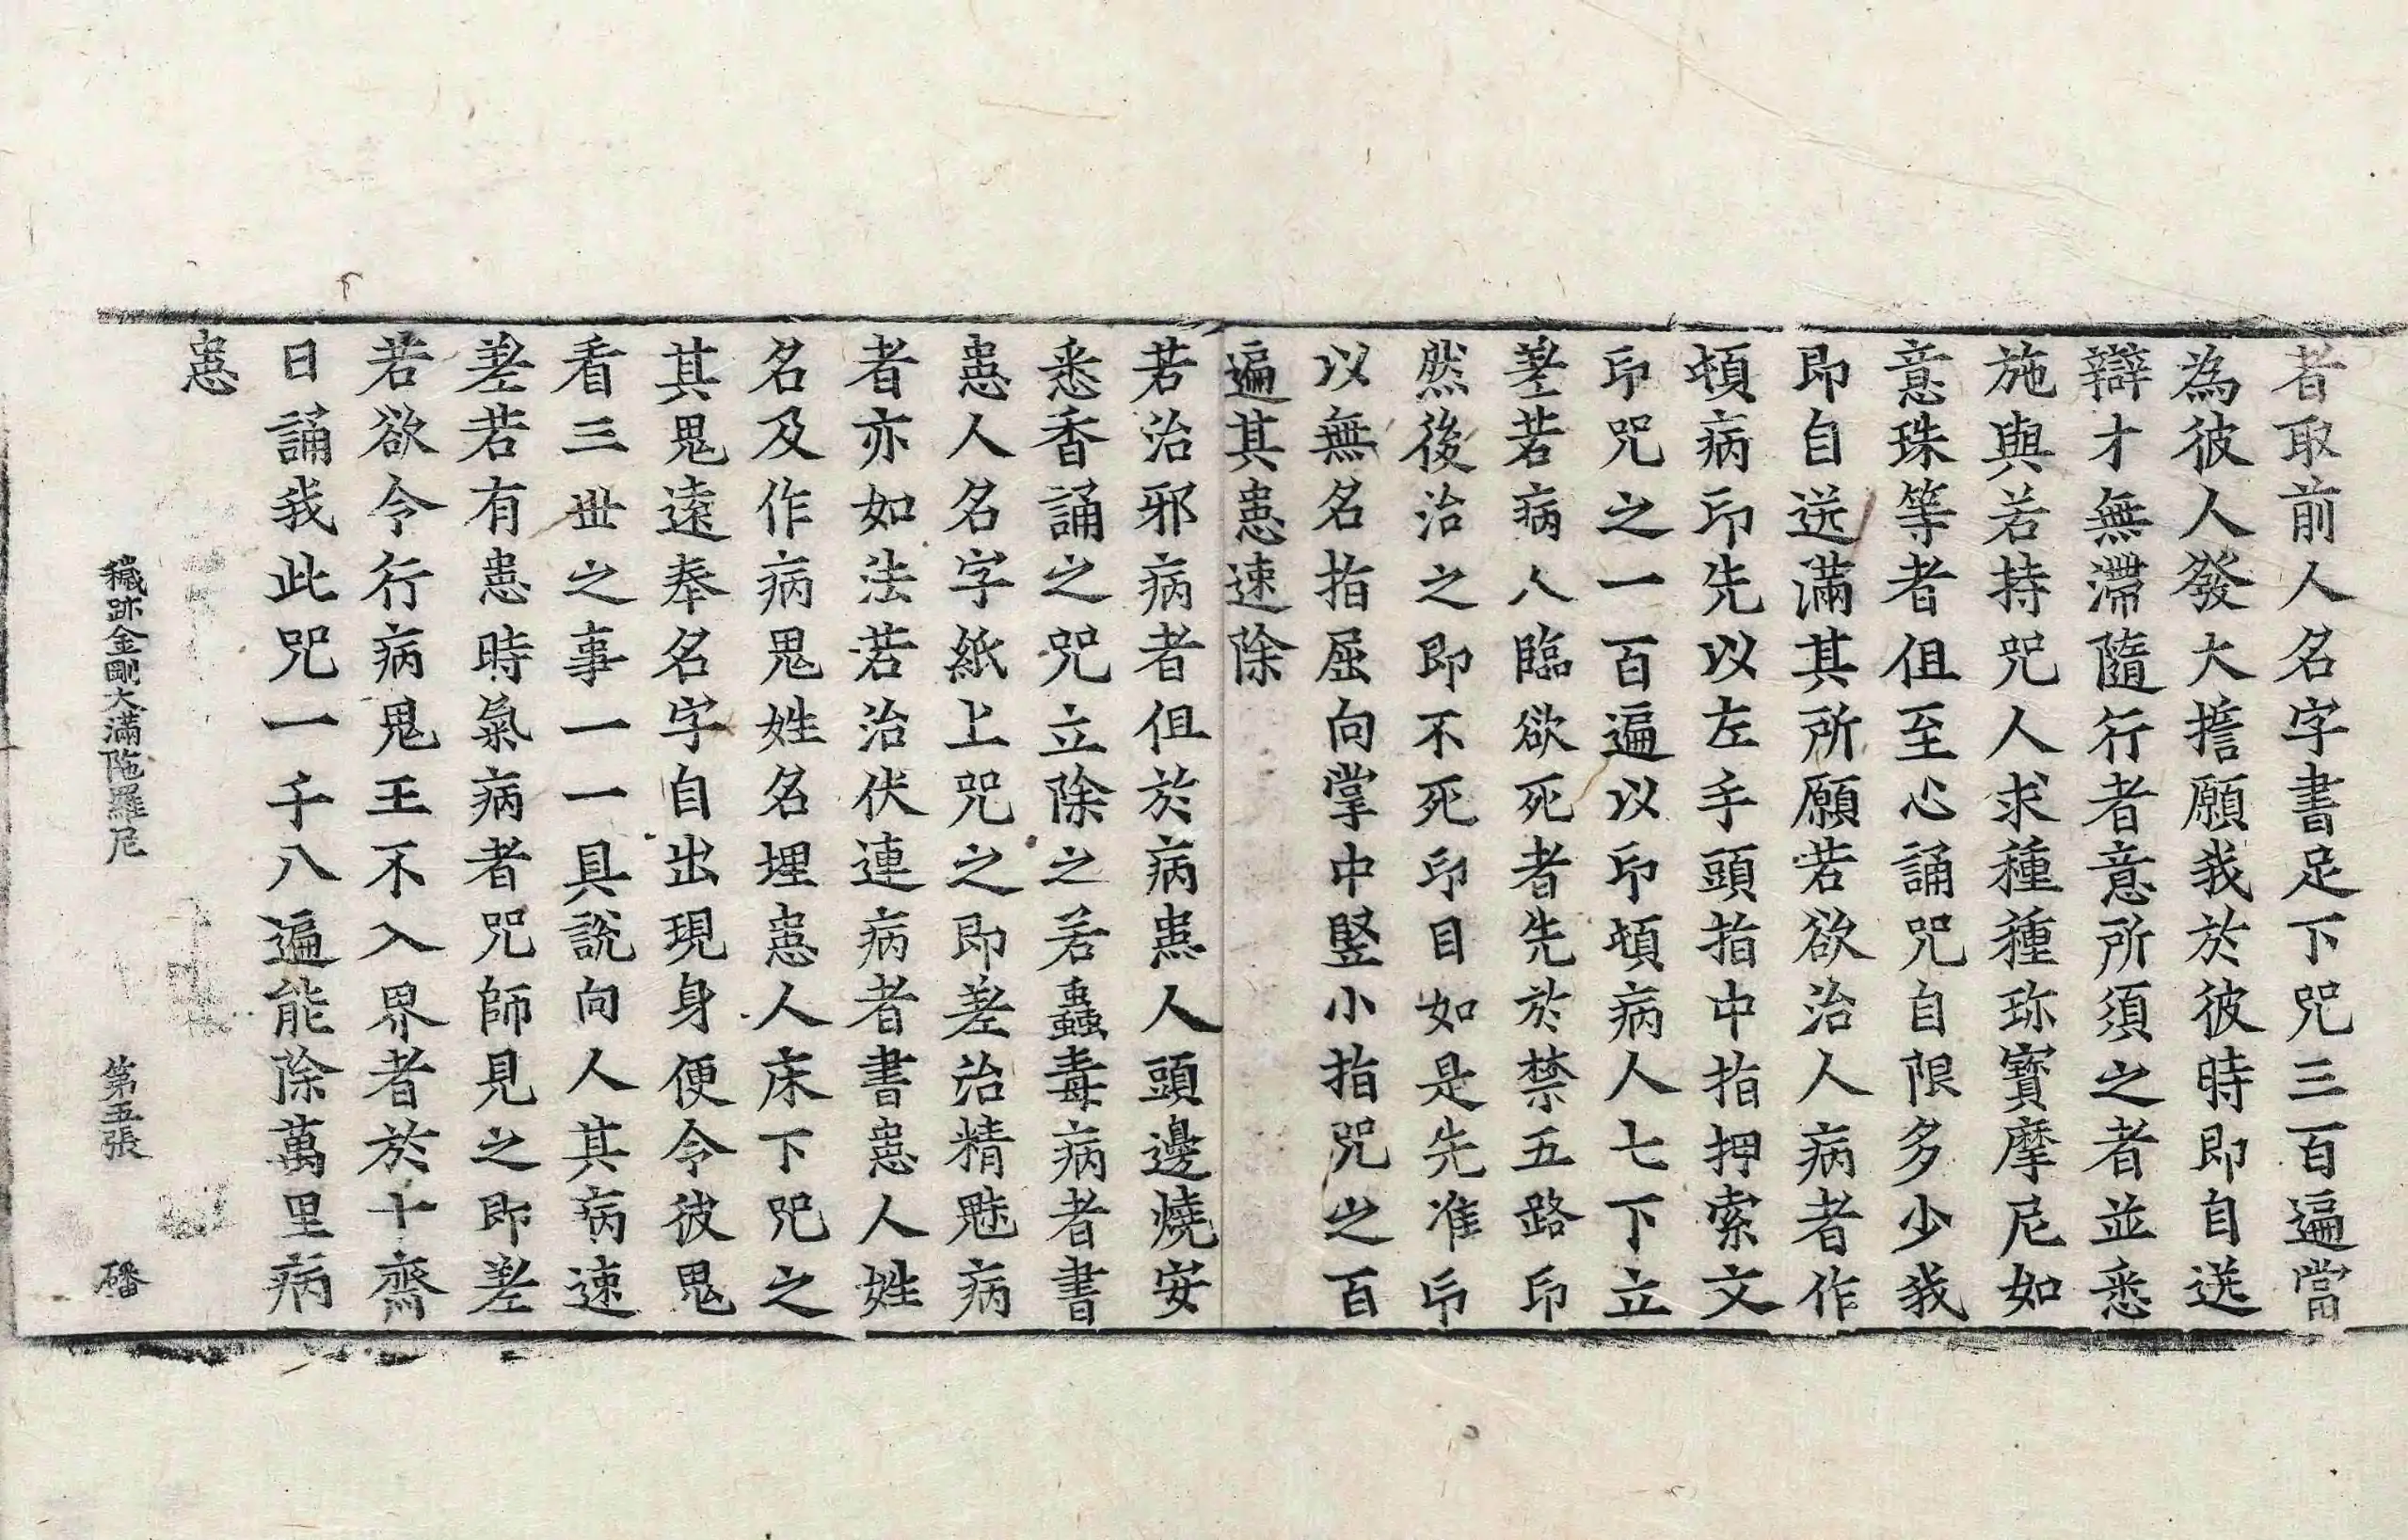 者取前人名字書足下咒三百遍當
為彼人發大擔願我於彼時即自送
辯才無滯隨行者意所須之者並悉
施與若持咒人求種種珎寳摩尼如
意珠等者伹至心誦咒自限多少我
即自送滿其所願若欲治人病者作
頓病印先以左手頭指中指押索文
印咒之一百遍以印頓病人七下立
差若病人臨欲死者先於禁五路印
然後治之即不死印目如是先准印
以無名指屈向掌中竪小指咒之百
遍其患速除
若治邪病者伹於病患人頭邊燒安
悉香誦之咒立除之若蟲毒病者書
患人名字紙上咒之即差治精魅病
者亦如法若治伏連病者書患人姓
名及作病鬼姓名埋患人床下咒之
其鬼遠奉名字自出現身便令彼鬼
看三世之事一一具說向人其病速
差若有患時氣病者咒師見之即差
若欲令行病鬼王不入界者於十齋
日誦我此咒一千八遍能除萬里病
患
穢跡金剛大滿陁羅尼 第五張 磻